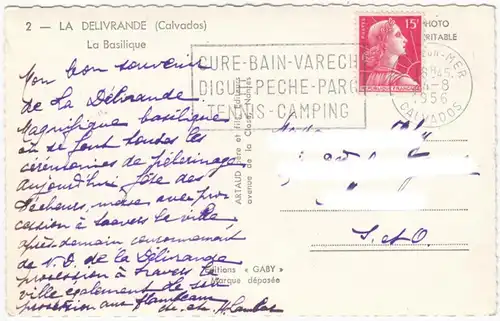 2 - LA DELIVRANDE (Calvados)
La Basilique
PHOTO
VÉRITABLE
15F
POSTES
RÉPUBLIQUE FRANÇAISE
CURE-BAIN-VARECH
DIGUE-PECHE-PARC
TENNIS-CAMPING
SUR-MER
4-8
1956
CALVADOS
Mon bon souvenir
de La Délivrande
Magnifique basilique
où se font toutes les
cérémonies de pèlerinage
aujourd'hui fête des
Pêcheurs, messe avec pro-
cession à travers la ville,
après-demain couronnement
de N. D. de la Délivrande
procession à travers la
ville également le soir
procession aux flambeaux
S. et O.
ARTAUD père et fils, éditeurs
avenue de la Close, Nantes
Editions « GABY »
Marque déposée